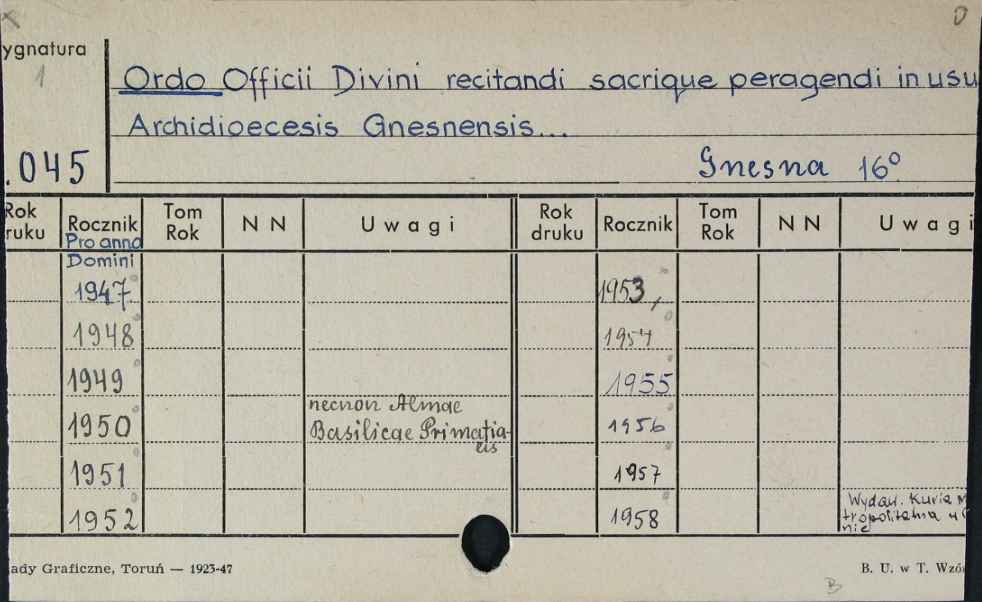 ygnatura
1
Ordo Officii Divini recitandi sacrique peragendi in usu
Archidioecesis Gnesnensis...
.045
Gnesna 16º
Rok
ruku
Rocznik
Tom
Rok
N N
Uwagi
Rok
druku
Rocznik
Tom
Rok
N N
Uwagi
Pro anno
Domini
1947
1953,
1948
1954
1949
1955
necnon Almae
1950
Basilicae Primatia-
lis
1956
1951
1957
1952
1958
Wydaw. Kuria M
tropolitalna w G
nie
ady Graficzne, Toruń — 1923-47
B. U. w T. Wzór
B